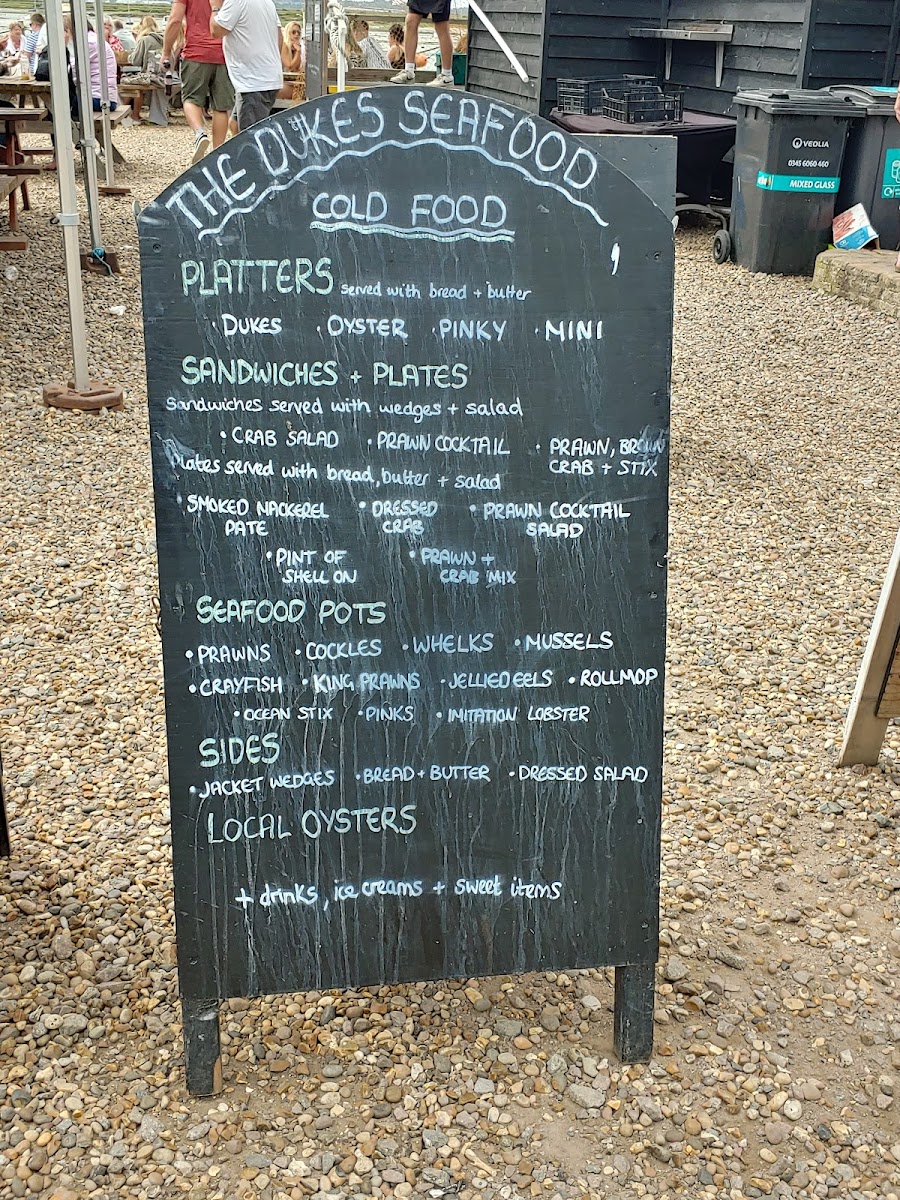 THE DUKES SEAFOOD
COLD FOOD
PLATTERS served with bread + butter
· DUKES · OYSTER · PINKY · MINI
SANDWICHES + PLATES
Sandwiches served with wedges + salad
· CRAB SALAD · PRAWN COCKTAIL · PRAWN, BROWN
CRAB + STIX
Plates served with bread, butter + salad
· SMOKED MACKEREL · DRESSED · PRAWN COCKTAIL
PATE CRAB SALAD
· PINT OF · PRAWN +
SHELL ON CRAB MIX
SEAFOOD POTS
· PRAWNS · COCKLES · WHELKS · MUSSELS
· CRAYFISH · KING PRAWNS · JELLIED EELS · ROLLMOP
· OCEAN STIX · PINKS · IMITATION LOBSTER
SIDES
· JACKET WEDGES · BREAD + BUTTER · DRESSED SALAD
LOCAL OYSTERS
+ drinks, ice creams + sweet items
VEOLIA
0345 6060 460
MIXED GLASS